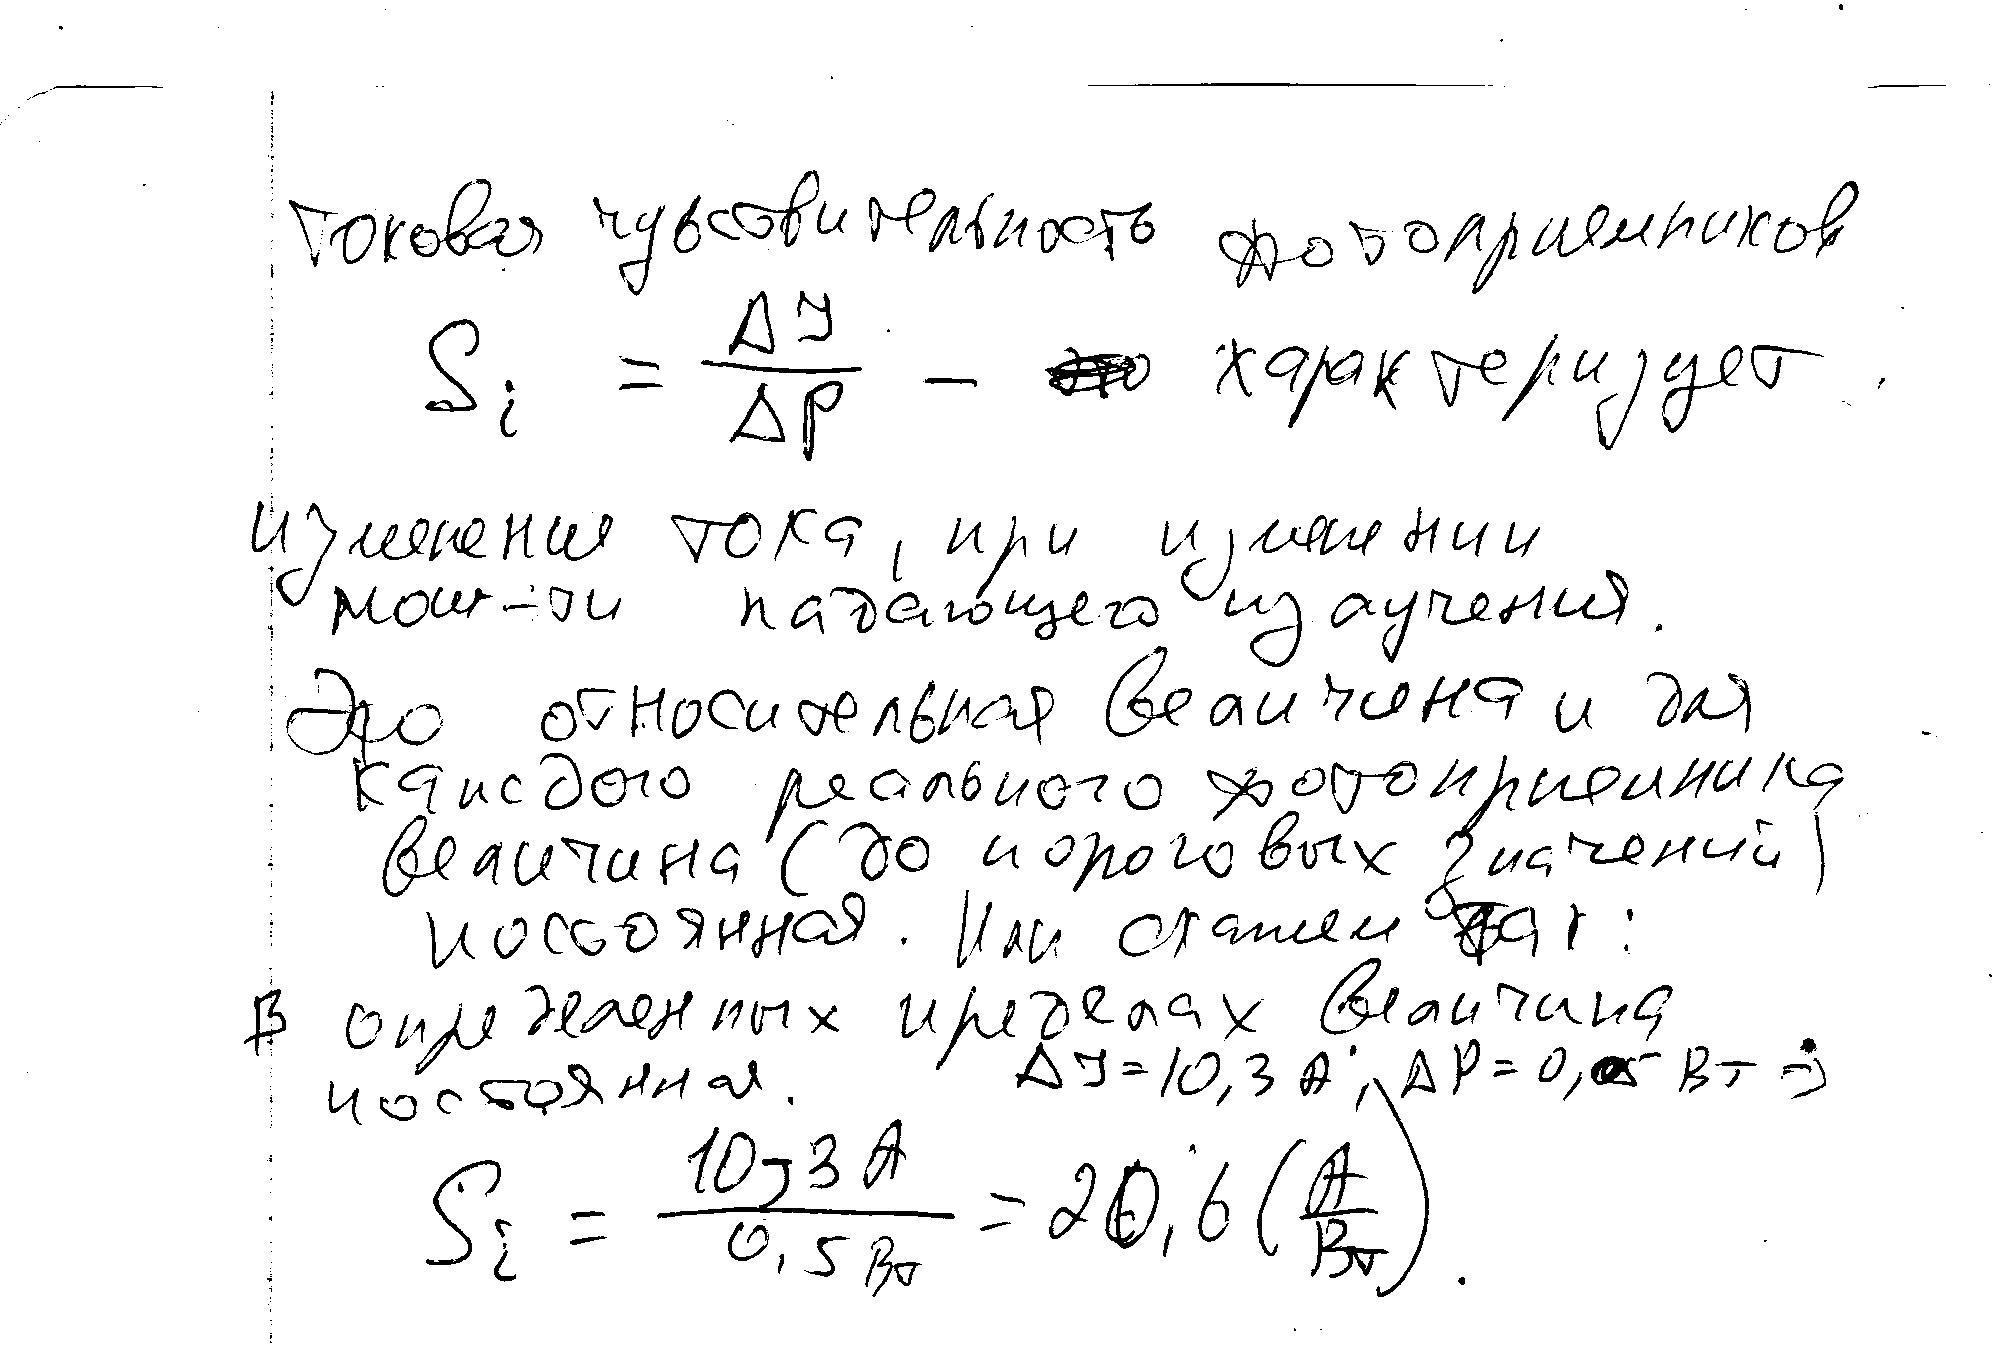 токовая чувствительность фотоприемников
Si = ΔJ/ΔP – характеризует
изменение тока, при изменении
мощ-ти падающего излучения.
Это относительная величина и для
каждого реального фотоприемника
величина (до пороговых значений)
постоянная. Или скажем так:
В определенных пределах величина
постоянная. ΔJ = 10,3 А; ΔP = 0,5 Вт
Si = 10,3 А / 0,5 Вт = 20,6 (А/Вт).